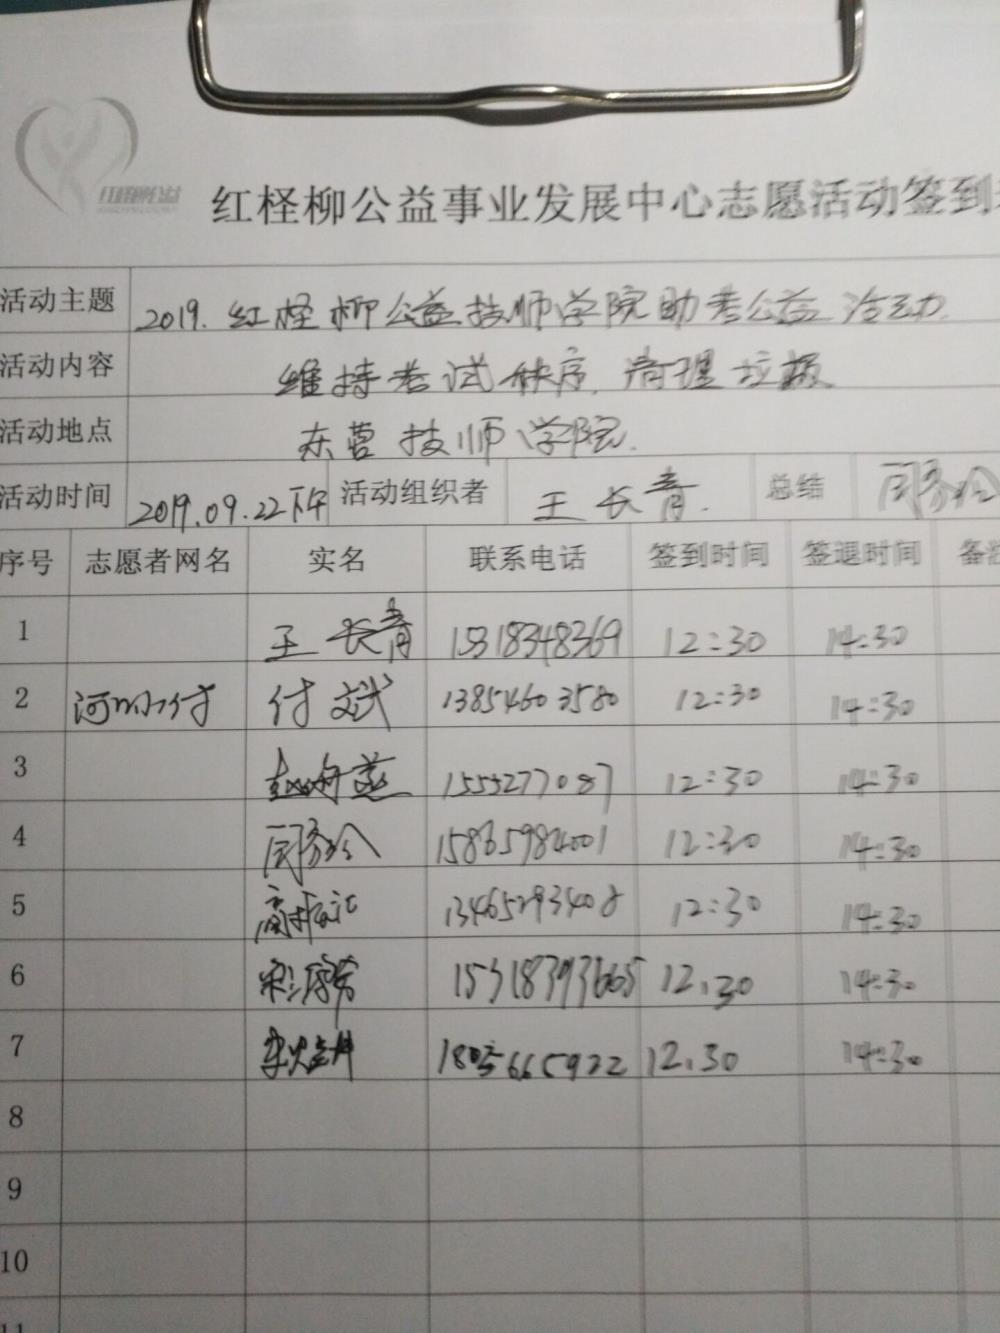 红柽柳公益
红柽柳公益事业发展中心志愿活动签到
活动主题 2019.红柽柳公益技师学院助考公益活动
活动内容 维持考试秩序.清理垃圾
活动地点 东营技师学院.
活动时间 2019.09.22下午 活动组织者 王长青. 总结
序号 志愿者网名 实名 联系电话 签到时间 签退时间 备注
1 王长青 15318348369 12:30 14:30
2 付斌 13854603580 12:30 14:30
3 12:30 14:30
4 12:30 14:30
5 13465293408 12:30 14:30
6 15318393665 12.30 14:30
7 12.30 14:30
8
9
10
11